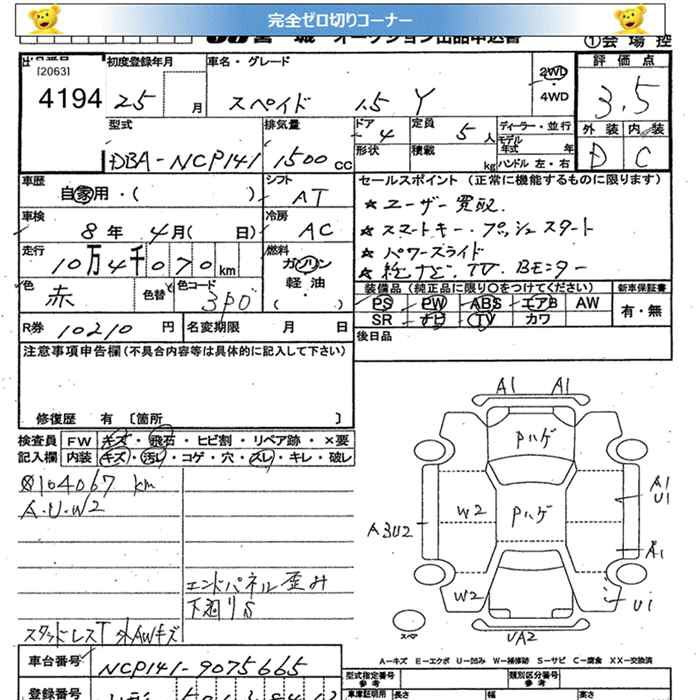 完全ゼロ切りコーナー
宮城 オークション出品申込書
①会場控
[2063]
4194
初度登録年月
25 月
車名・グレード
スペイド 1.5 Y
2WD
4WD
評価点
3.5
外装 内装
D C
型式
DBA-NCP141
排気量
1500 CC
ドア
4
形状
定員
5 人
積載
kg
ディーラー・並行
モデル年式 年
ハンドル 左・右
車歴
自家用・( )
シフト
AT
車検
8年 4月( 日)
冷房
AC
走行
10万4千070 km
燃料
ガソリン
軽油・
( )
色
赤
色替
色コード
3P0
R券 10210 円
名変期限 月 日
セールスポイント (正常に機能するものに限ります)
★ユーザー買取
★スマートキー・プッシュスタート
★パワースライド
★純ナビ・TV・Bモニター
装備品(純正品に限り○をつけてください)
PS PW ABS エアB AW
SR ナビ TV カワ
新車保証書
有・無
後日品
注意事項申告欄(不具合内容等は具体的に記入して下さい)
修復歴 有 〔箇所 〕
検査員 FW キズ・飛石・ヒビ割・リペア跡・×要
記入欄 内装 キズ・汚レ・コゲ・穴・スレ・キレ・破レ
104067 km
A.U.W2
エンドパネル歪み
下廻りS
スタッドレスT 外AWキズ
A1 A1
Pハゲ
W2 Pハゲ
A1
U1
A3U2
A1
W2
U1
スペア
UA2
A-キズ E-エクボ U-凹み W-補修跡 S-サビ C-腐食 XX-交換済
車台番号 NCP141-9075665
登録番号
型式指定番号
参考
類別区分番号
参考
車庫証明用
長さ 幅 高さ